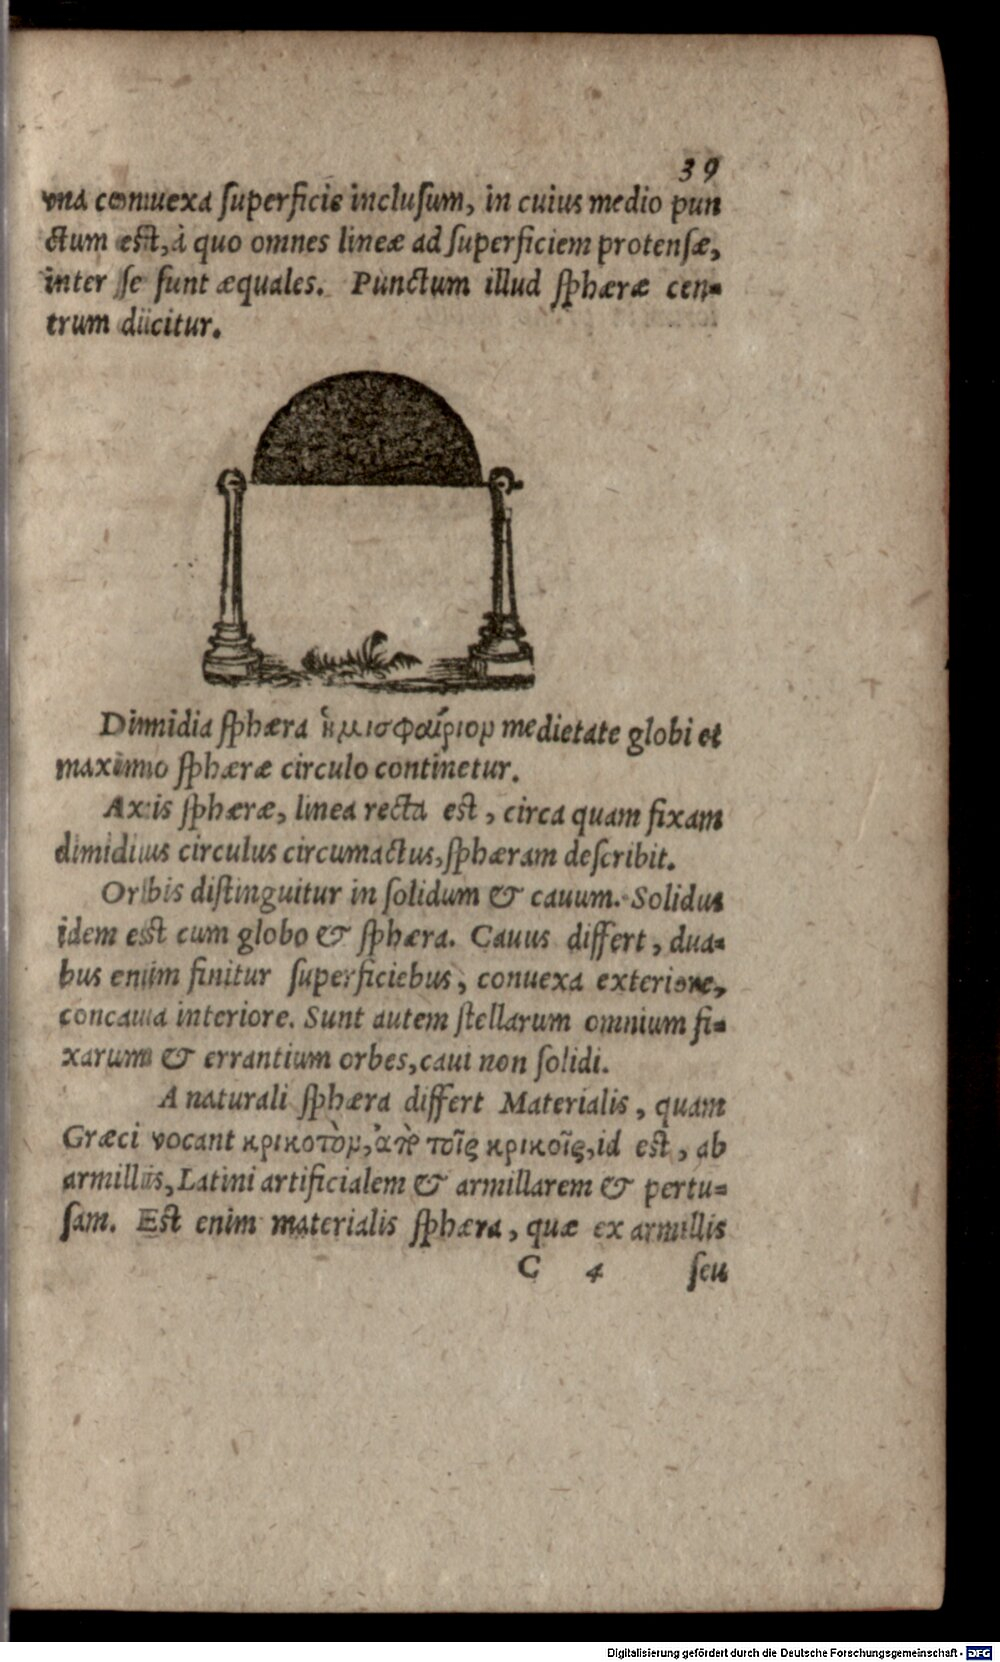 39
vna conuexa ſuperficie incluſum, in cuius medio pun
ctum eſt, à quo omnes lineæ ad ſuperficiem protenſæ,
inter ſe ſunt æquales. Punctum illud ſphæræ cen-
trum dicitur.
Dimidia ſphæra ἡμισφαίριον medietate globi et
maximo ſphæræ circulo continetur.
Axis ſphæræ, linea recta eſt, circa quam fixam
dimidius circulus circumactus, ſphæram deſcribit.
Orbis diſtinguitur in ſolidum & cauum. Solidus
idem eſt cum globo & ſphæra. Cauus differt, dua-
bus enim finitur ſuperficiebus, conuexa exteriore,
concaua interiore. Sunt autem ſtellarum omnium fi-
xarum & errantium orbes, caui non ſolidi.
A naturali ſphæra differt Materialis, quam
Græci vocant κρικοτὸν, ἀπὸ τοῖς κρικοῖς, id eſt, ab
armillis, Latini artificialem & armillarem & pertu-
ſam. Eſt enim materialis ſphæra, quæ ex armillis
C 4 ſeu
Digitalisierung gefördert durch die Deutsche Forschungsgemeinschaft - DFG